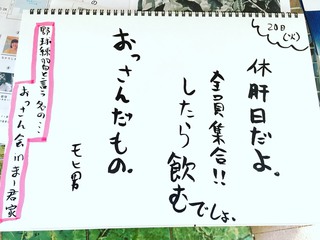 20日(火)
休肝日だよ。
全員集合!!
したら飲むでしょ。
おっさんだもの。
モヒ男
野球練習と言う名の…
おっさん会inまー君家